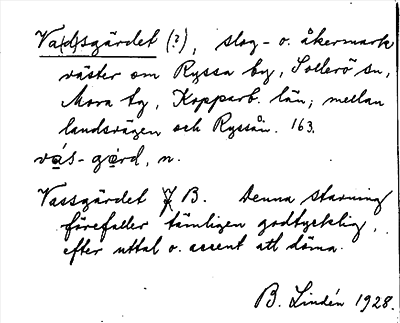 Va(d)sgärdet (?), slog- o. åkermark
väster om Ryssa by, Sollerö sn,
Mora tg, Kopparb. län; mellan
landsvägen och Ryssån. 163.
vás-gàrd, n.
Vassgärdet B. Denna stavning
förefaller tämligen godtycklig,
efter uttal o. accent att döma.
B. Lindén 1928.